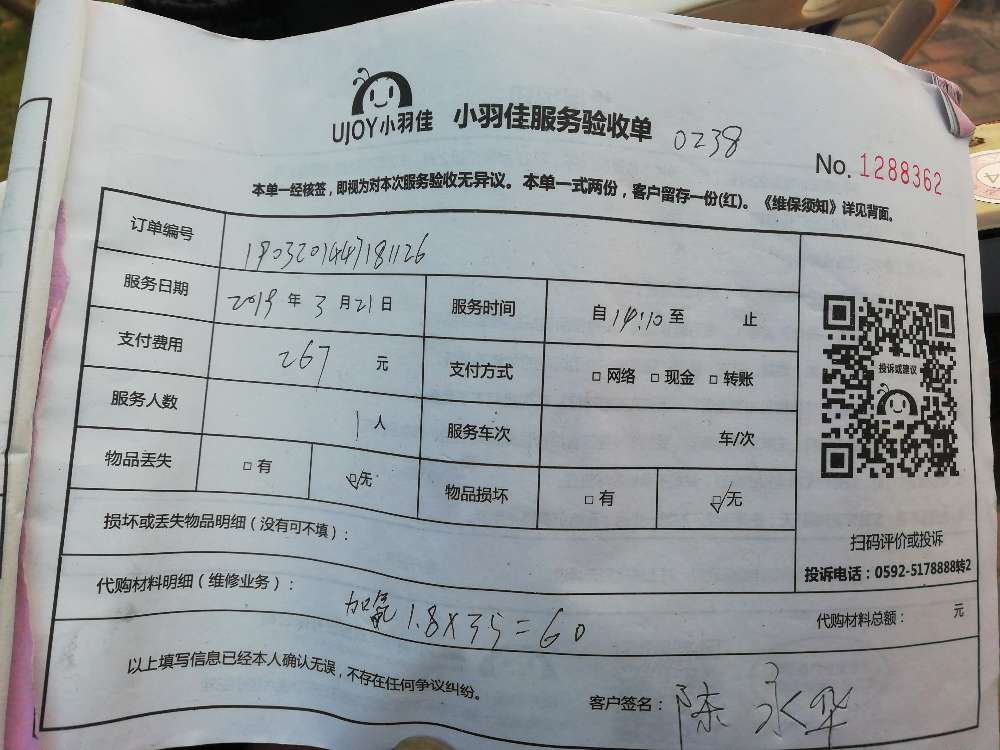 UJOY小羽佳 小羽佳服务验收单 0238
No. 1288362
本单一经核签，即视为对本次服务验收无异议。本单一式两份，客户留存一份(红)。《维保须知》详见背面。
订单编号 1903201447181126
服务日期 2019 年 3 月 21 日 服务时间 自 14:10 至 止
支付费用 267 元 支付方式 □ 网络 □ 现金 □ 转账
服务人数 1 人 服务车次 车/次
物品丢失 □ 有 ☑ 无 物品损坏 □ 有 ☑ 无
投诉或建议
扫码评价或投诉
投诉电话：0592-5178888转2
损坏或丢失物品明细（没有可不填）：
代购材料明细（维修业务）： 代购材料总额： 元
加氟 1.8×35=60
以上填写信息已经本人确认无误，不存在任何争议纠纷。
客户签名： 陈永华